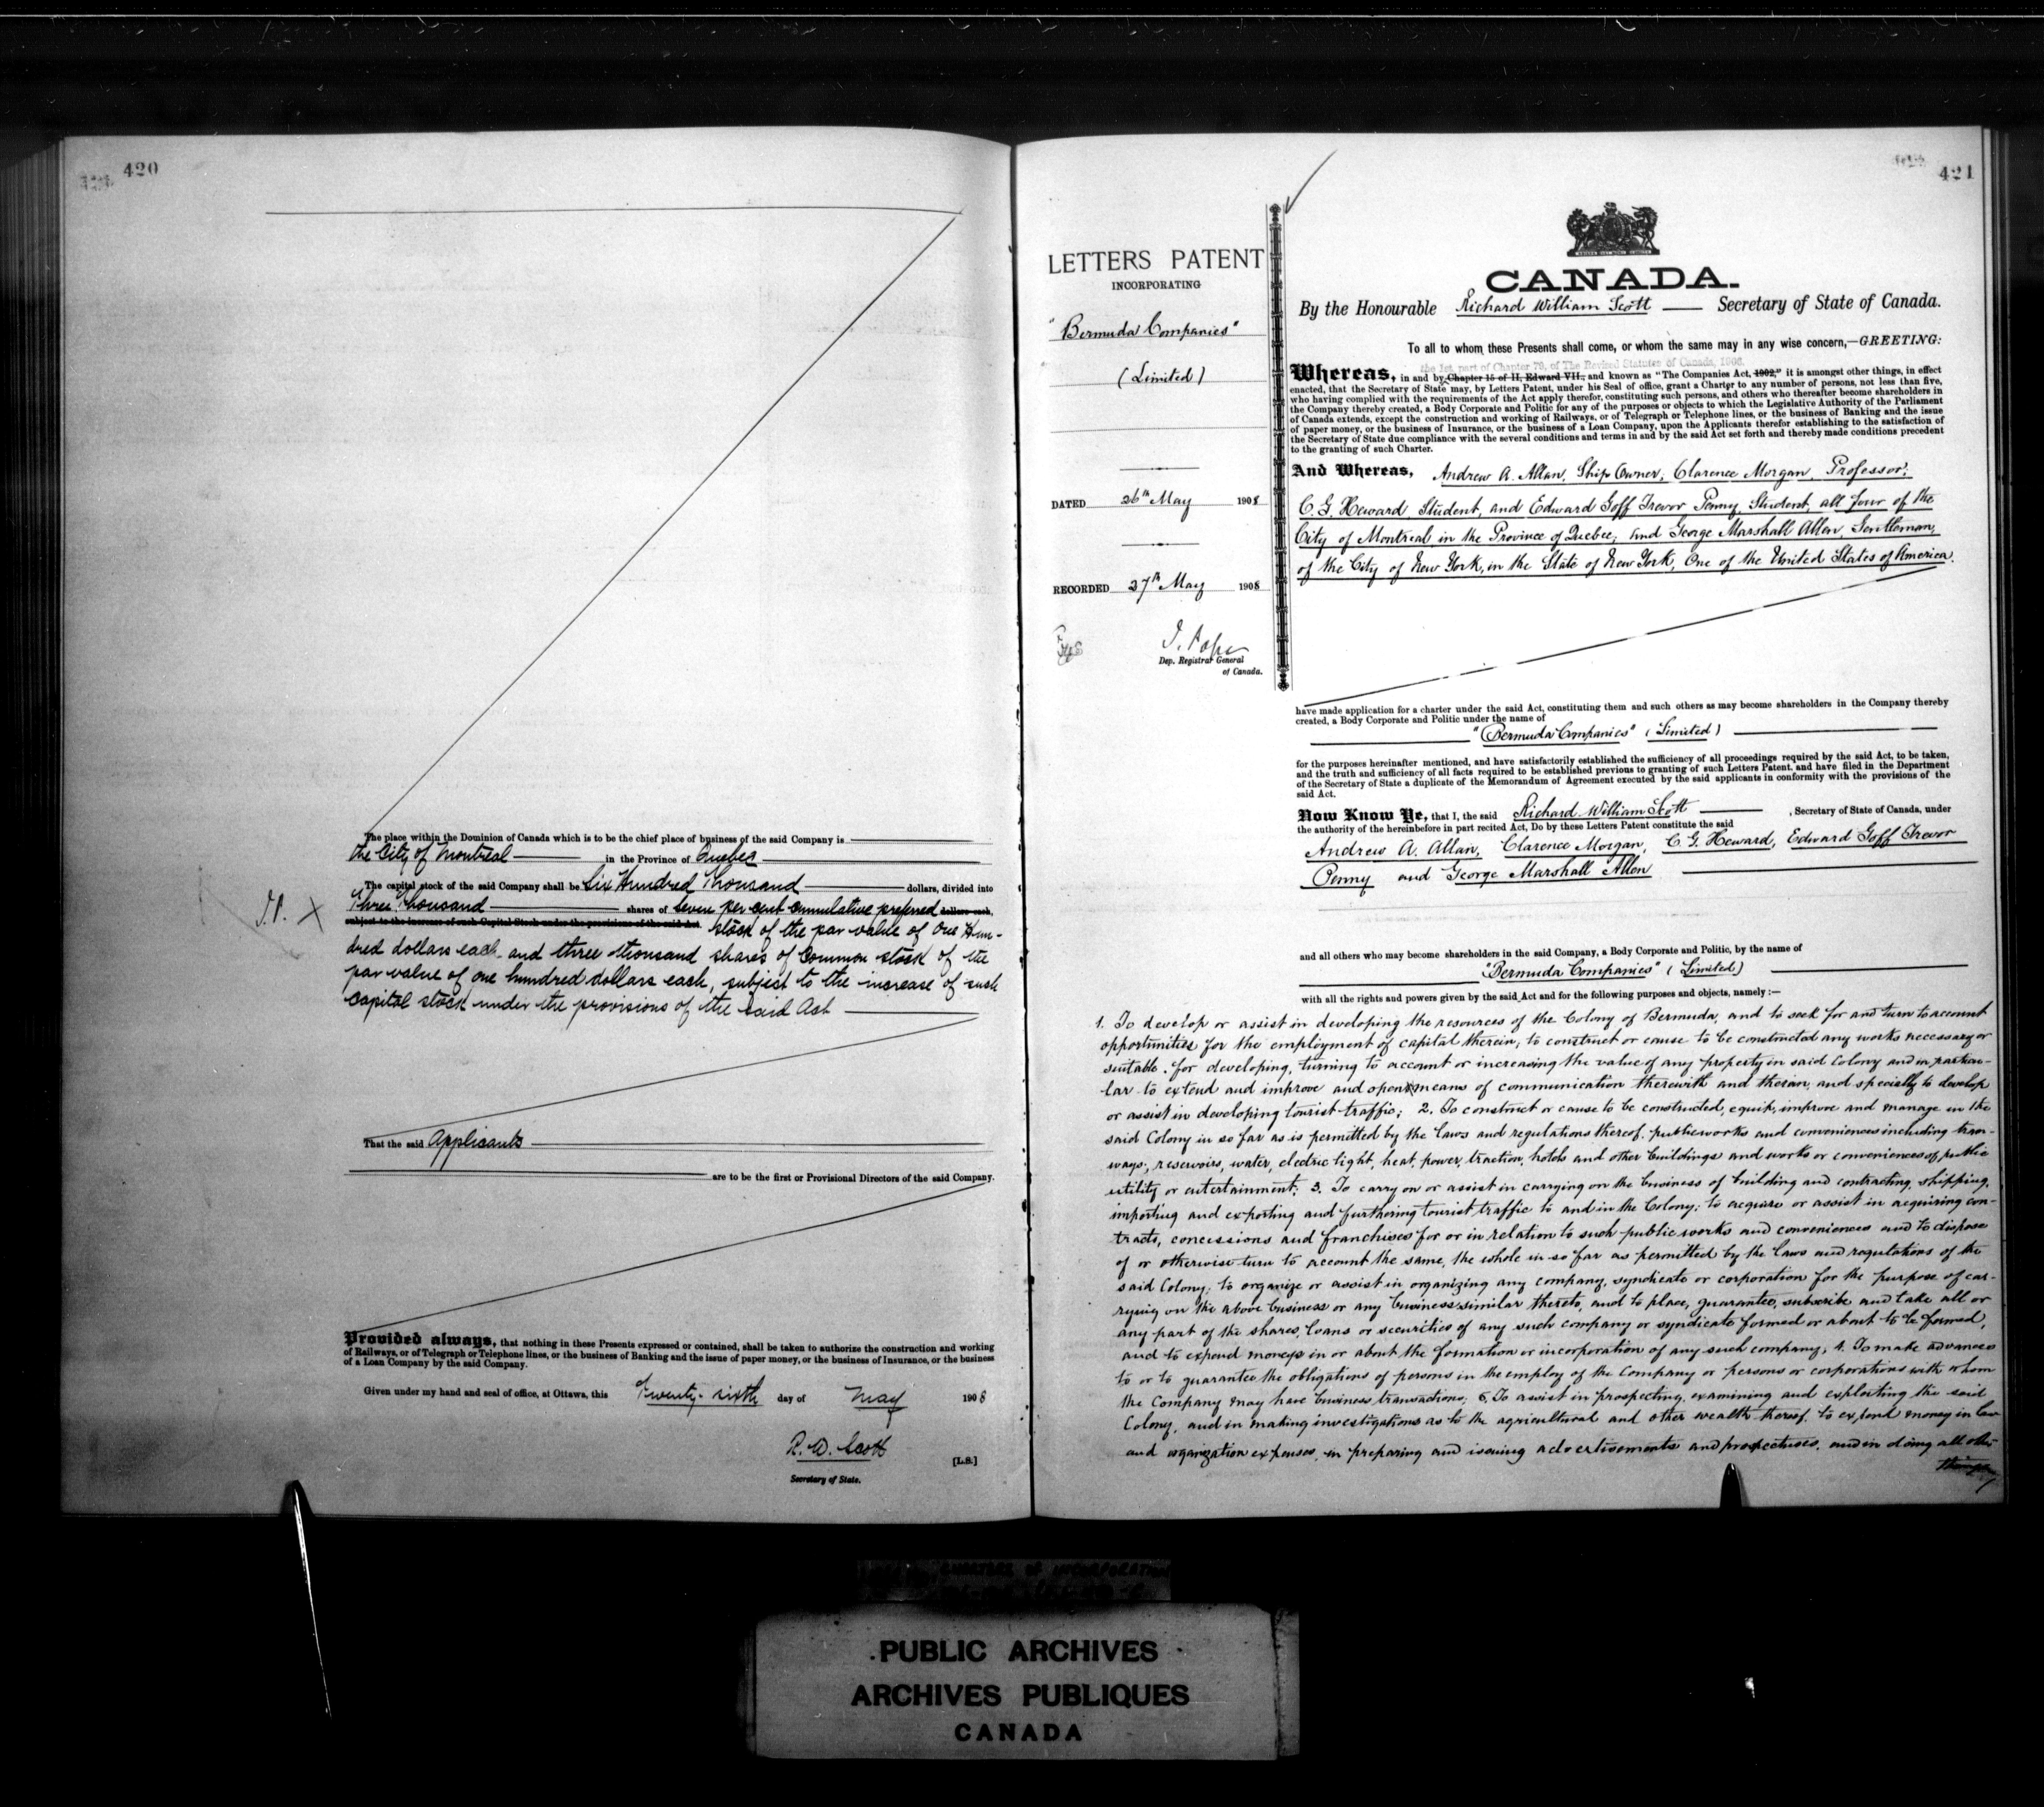 420
The place within the Dominion of Canada which is to be the chief place of business of the said Company is
the City of Montreal in the Province of Quebec
The capital stock of the said Company shall be Six Hundred Thousand dollars, divided into
Three Thousand shares of Seven per cent cumulative preferred dollars each,
subject to the increase of such Capital Stock under the provisions of the said Act. stock of the par value of One Hun-
dred dollars each and three thousand shares of Common stock of the
par value of one hundred dollars each, subject to the increase of such
capital stock under the provisions of the said Act
That the said Applicants
are to be the first or Provisional Directors of the said Company.
Provided always, that nothing in these Presents expressed or contained, shall be taken to authorize the construction and working
of Railways, or of Telegraph or Telephone lines, or the business of Banking and the issue of paper money, or the business of Insurance, or the business
of a Loan Company by the said Company.
Given under my hand and seal of office, at Ottawa, this Twenty-sixth day of May 1908
R. W. Scott
[L.S.]
Secretary of State.
421
LETTERS PATENT
INCORPORATING
"Bermuda Companies"
(Limited)
DATED 26th May 1908
RECORDED 27th May 1908
J. Pope
Dep. Registrar General
of Canada.
CANADA.
By the Honourable Richard William Scott Secretary of State of Canada.
To all to whom these Presents shall come, or whom the same may in any wise concern,—GREETING:
the 1st part of Chapter 79, of The Revised Statutes of Canada, 1906.
Whereas, in and by Chapter 15 of II, Edward VII., and known as "The Companies Act, 1902," it is amongst other things, in effect
enacted, that the Secretary of State may, by Letters Patent, under his Seal of office, grant a Charter to any number of persons, not less than five,
who having complied with the requirements of the Act apply therefor, constituting such persons, and others who thereafter become shareholders in
the Company thereby created, a Body Corporate and Politic for any of the purposes or objects to which the Legislative Authority of the Parliament
of Canada extends, except the construction and working of Railways, or of Telegraph or Telephone lines, or the business of Banking and the issue
of paper money, or the business of Insurance, or the business of a Loan Company, upon the Applicants therefor establishing to the satisfaction of
the Secretary of State due compliance with the several conditions and terms in and by the said Act set forth and thereby made conditions precedent
to the granting of such Charter.
And Whereas, Andrew A. Allan, Ship Owner, Clarence Morgan, Professor,
C. G. Heward Student, and Edward Goff Trevor Penny, Student, all four of the
City of Montreal in the Province of Quebec, and George Marshall Allen, Gentleman,
of the City of New York, in the State of New York, One of the United States of America.
have made application for a charter under the said Act, constituting them and such others as may become shareholders in the Company thereby
created, a Body Corporate and Politic under the name of
"Bermuda Companies" (Limited)
for the purposes hereinafter mentioned, and have satisfactorily established the sufficiency of all proceedings required by the said Act, to be taken,
and the truth and sufficiency of all facts required to be established previous to granting of such Letters Patent, and have filed in the Department
of the Secretary of State a duplicate of the Memorandum of Agreement executed by the said applicants in conformity with the provisions of the
said Act.
Now Know Ye, that I, the said Richard William Scott , Secretary of State of Canada, under
the authority of the hereinbefore in part recited Act, Do by these Letters Patent constitute the said
Andrew A. Allan, Clarence Morgan, C. G. Heward, Edward Goff Trevor
Penny and George Marshall Allen
and all others who may become shareholders in the said Company, a Body Corporate and Politic, by the name of
"Bermuda Companies" (Limited)
with all the rights and powers given by the said Act and for the following purposes and objects, namely :—
1. To develop or assist in developing the resources of the Colony of Bermuda, and to seek for and turn to account
opportunities for the employment of capital therein; to construct or cause to be constructed any works necessary or
suitable for developing, turning to account or increasing the value of any property in said Colony and in particu-
lar to extend and improve and open means of communication therewith and therein, and specially to develop
or assist in developing tourist traffic; 2. To construct or cause to be constructed, equip, improve and manage in the
said Colony in so far as is permitted by the laws and regulations thereof, public works and conveniences including tram-
ways, reservoirs, water, electric light, heat, power, traction, hotels and other buildings and works or conveniences of public
utility or entertainment; 3. To carry on or assist in carrying on the business of building and contracting, shipping,
importing and exporting and furthering tourist traffic to and in the Colony; to acquire or assist in acquiring con-
tracts, concessions and franchises for or in relation to such public works and conveniences and to dispose
of or otherwise turn to account the same, the whole in so far as permitted by the laws and regulations of the
said Colony; to organize or assist in organizing any company, syndicate or corporation for the purpose of car-
rying on the above business or any business similar thereto, and to place, guarantee, subscribe and take all or
any part of the shares, loans or securities of any such company or syndicate formed or about to be formed,
and to expend moneys in or about the formation or incorporation of any such company; 4. To make advances
to or to guarantee the obligations of persons in the employ of the Company or persons or corporations with whom
the Company may have business transactions; 5. To assist in prospecting, examining and exploiting the said
Colony, and in making investigations as to the agricultural and other wealth thereof, to expend money in law
and organization expenses, in preparing and issuing advertisements and prospectuses, and in doing all other
PUBLIC ARCHIVES
ARCHIVES PUBLIQUES
CANADA